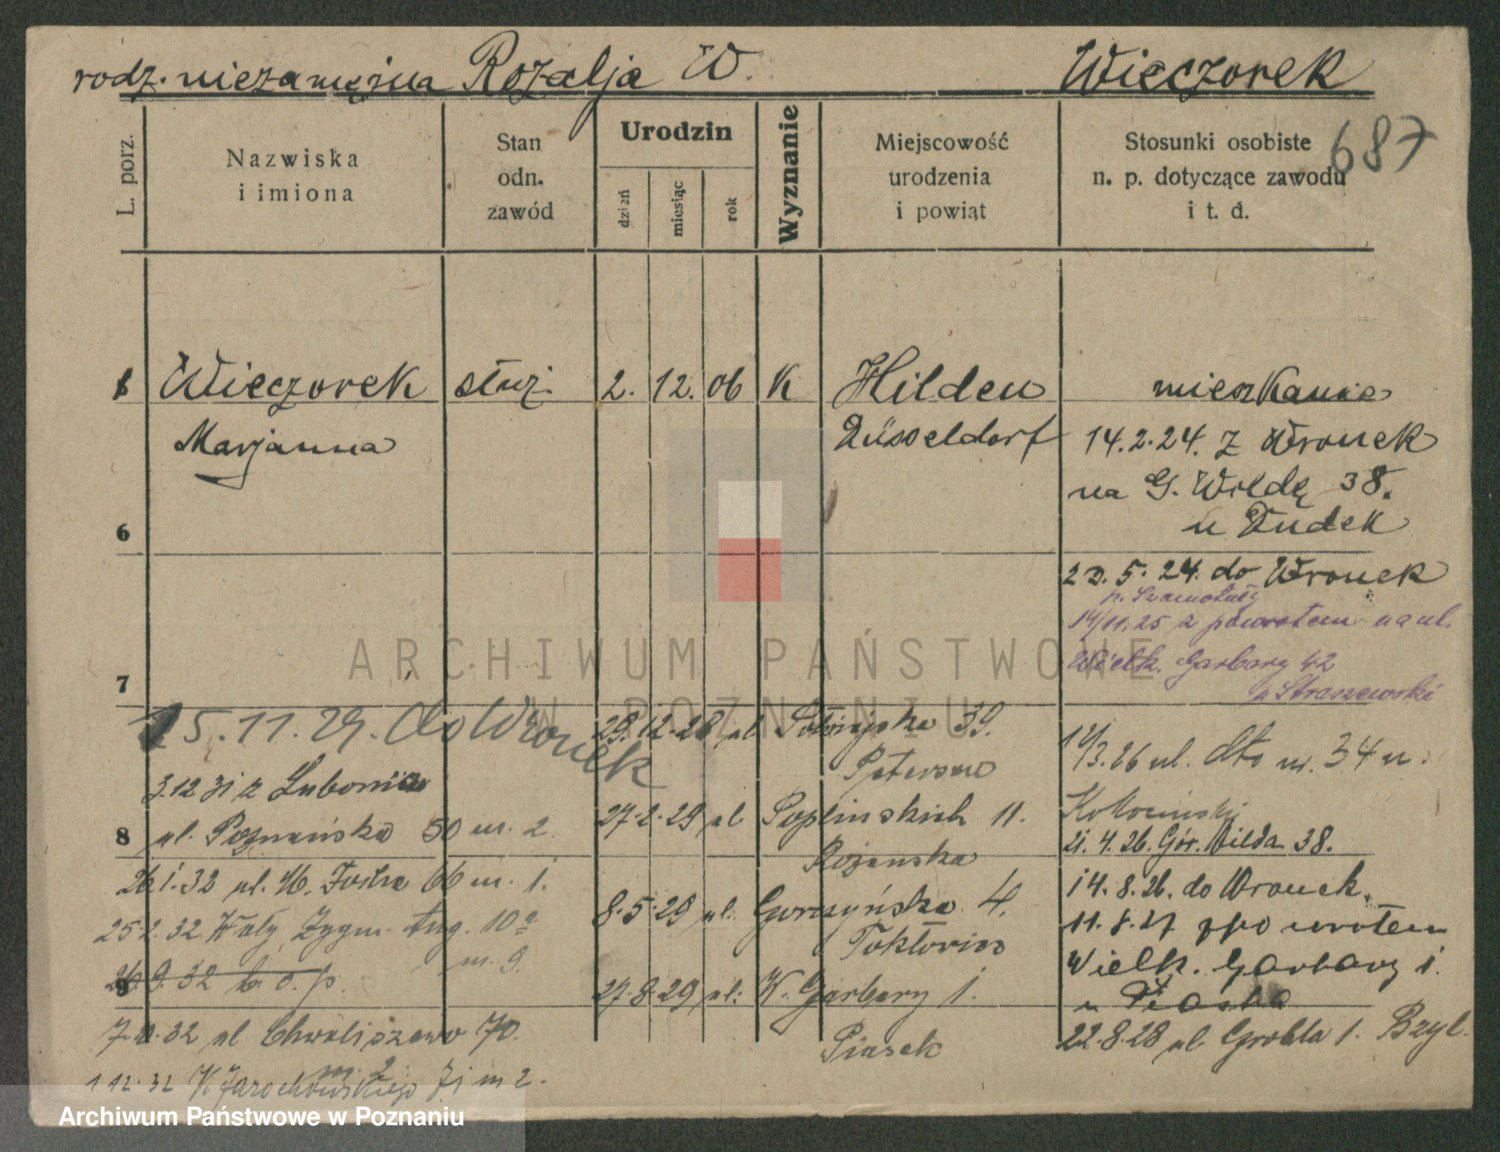 rodz. niezamężna Rozalja W. Wieczorek
687
L. porz.
Nazwiska
i imiona
Stan
odn.
zawód
Urodzin
dzień
miesiąc
rok
Wyznanie
Miejscowość
urodzenia
i powiąt
Stosunki osobiste
n. p. dotyczące zawodu
i t. d.
Wieczorek służ. 2. 12. 06 K Hilden
Marjanna Düsseldorf
mieszkanie
14.2.24. z Wronek
na G. Wildę 38.
u Dudek
6
5. 24. do Wronek
p. Szamotuły
14/11.25 z powrotem na ul.
Wielk. Garbary 42
u Straszewski
7
15.11.29. do Wronek
3.12 31 z Lubonia
8
ul. Poznańska 50 m. 2.
26.1.32 ul. m. 1.
25.2.32 Wały Zygm. Aug. 10a
m. 9.
9
32 b. o. p.
32 ul Chwaliszewo 70.
m. 2
1 12. 32 K Jarochowskiego 71 m 2.
29.12.28 ul 39.
27.2.29 ul Poplinskich 11.
8.5.29 ul. Gorczyńska 4.
27.8.29 ul. W. Garbary 1.
Piasek
3.26 ul. dto m. 34 u.
21.4.26. Gór. Wilda 38.
14.8.26. do Wronek.
11.8.27 z powrotem
Wielk. Garbary 1.
u Piaska
22.8.28 ul Grobla 1.
ARCHIWUM PAŃSTWOWE
W POZNANIU
Archiwum Państwowe w Poznaniu